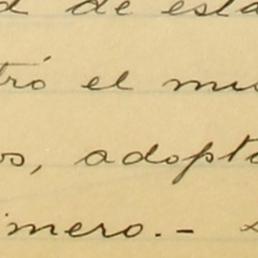 d de esta
tró el mu
os, adopt
imero.-